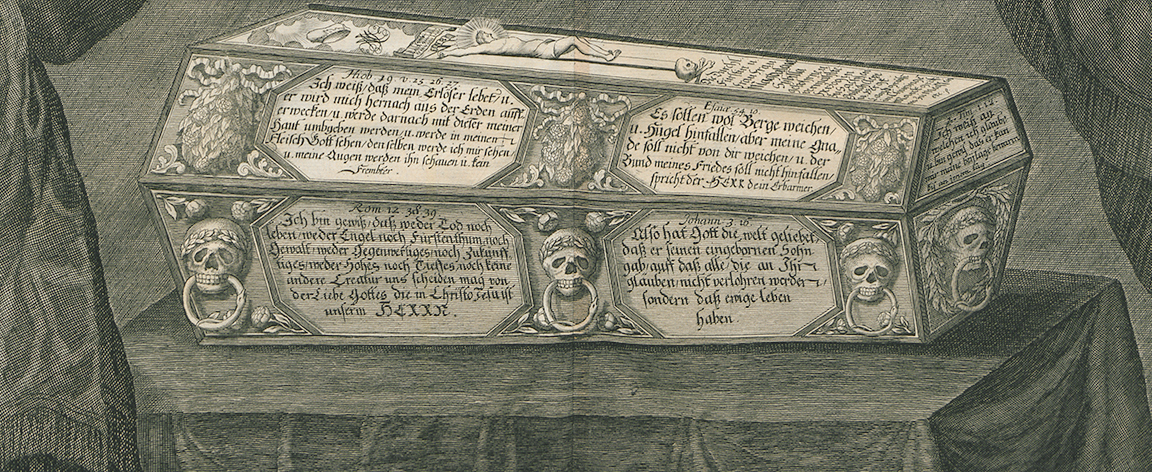 Hiob. 19. v. 25. 26. 27.
Ich weiß/ daß mein Erlöser lebet/ u.
er wird mich hernach aus der Erden auff-
erwecken/ u. werde darnach mit dieser meiner
Haut umbgeben werden/ u. werde in meinem
Fleisch Gott sehen/ denselben werde ich mir sehen
u. meine Augen werden ihn schauen u. kein
Frembder.
Esaiæ 54. 10.
Es sollen wol Berge weichen/
u. Hügel hinfallen/ aber meine Gna-
de soll nicht von dir weichen/ u. der
Bund meines Friedes soll nicht hinfallen/
spricht der HERR dein Erbarmer.
Ich weiß an
welchen ich glaube
u. bin gewiß das er kan
mir meine beylage bewaren
biß an jenen tag
Rom 12. 38. 39.
Ich bin gewiß/ daß weder Tod noch
leben/ weder Engel noch Fürstenthum/ noch
Gewalt/ weder Gegenwertiges/ noch Zukünff-
tiges/ weder Hohes noch Tieffes/ noch keine
andere Creatur uns scheiden mag von
der Liebe Gottes die in Christo Jesu ist
unserm HERRN.
Johann. 3. 16.
Also hat Gott die welt geliebet/
daß er seinen eingebornen Sohn
gab/ auff daß alle/ die an Ihn
glauben/ nicht verlohren werden/
sondern daß ewige leben
haben.